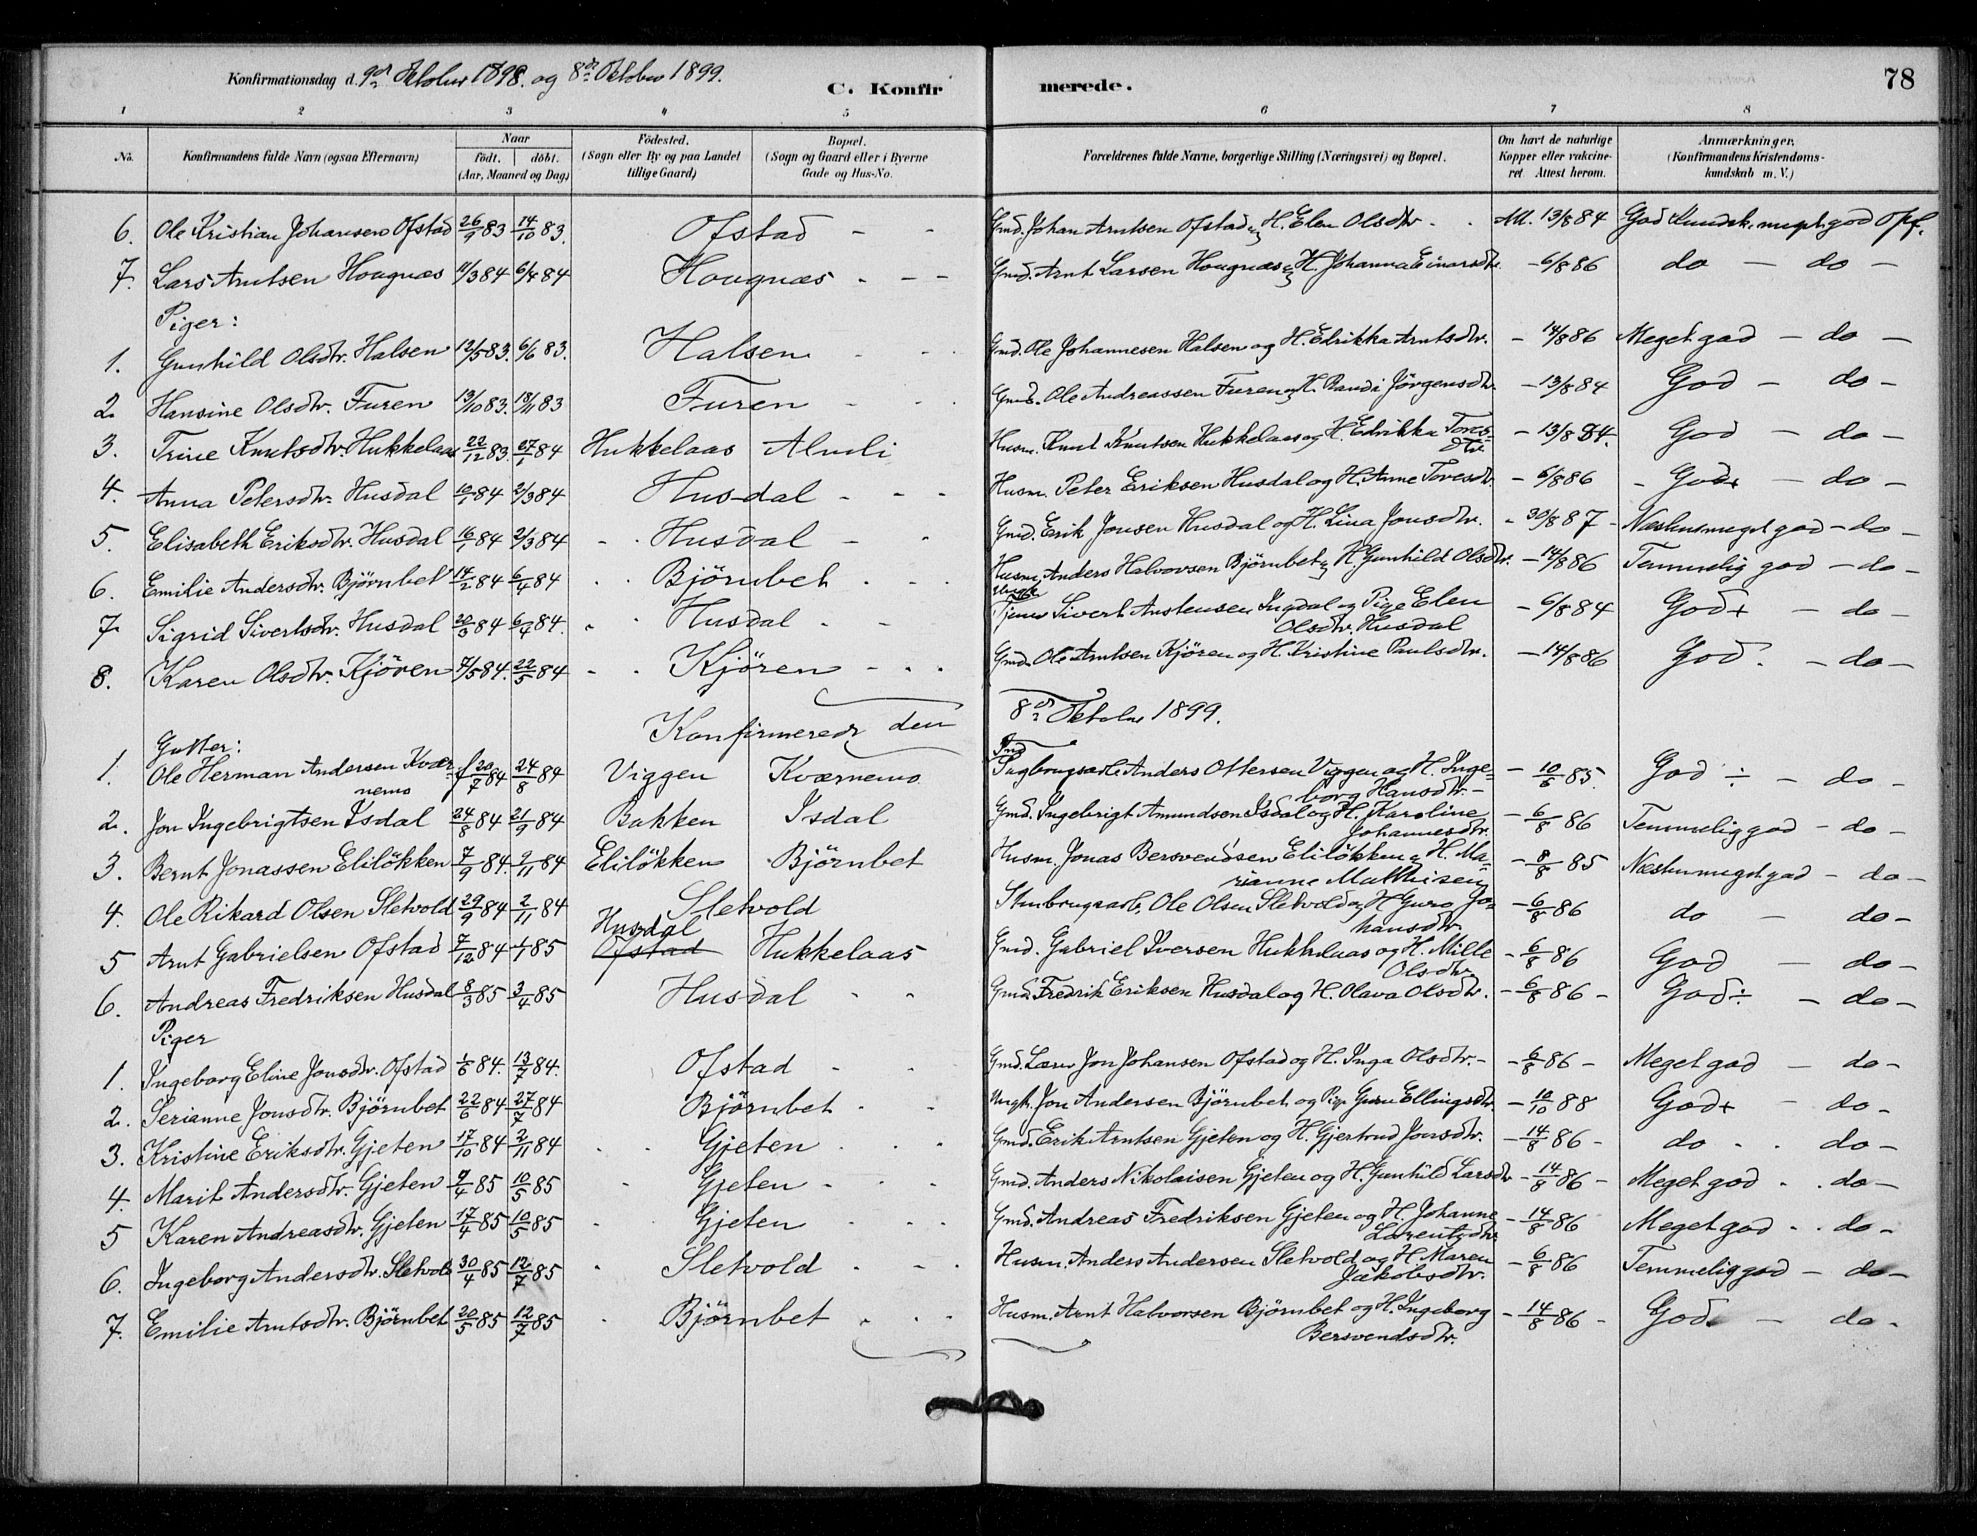 Konfirmationsdag d. 9de Oktober 1898. og 8de Oktober 1899.
C. Konfir merede. 78
1 2 3 4 5 6 7 8
No. Konfirmandens fulde Navn (ogsaa Efternavn) Naar födt. döbt. (Aar, Maaned og Dag) Födested. (Sogn eller By og paa Landet tillige Gaard) Bopæl. (Sogn og Gaard eller i Byerne Gade og Hus-No. Forældrenes fulde Navne, borgerlige Stilling (Næringsvei) og Bopæl. Om havt de naturlige Kopper eller vakcineret. Attest herom. Anmærkninger. (Konfirmandens Kristendomskundskab m. V.)
6. Ole Kristian Johansen Ofstad 26/9 83 14/10 83. Ofstad - - Gmd. Johan Arntsen Ofstad og H. Elen Olsdtr - - Att. 13/8 84 God Kundsk. meget god Opf.
7. Lars Arntsen Hougnæs 11/3 84 6/4 84 Hougnæs - - - Gmd. Arnt Larsen Hougnæs og H. Johanna Einarsdtr. - 6/8 86 do - do -
Piger:
1. Gunhild Olsdtr. Halsen 12/5 83. 6/6 83. Halsen - - - Gmd. Ole Johannesen Halsen og H. Edrikka Arntsdtr. - 14/8 86 Meget god - do -
2. Hansine Olsdtr. Furen 13/10 83. 18/11 83 Furen - - - Gmd. Ole Andreassen Furen og H. Randi Jörgensdtr. - 13/8 84 God - do -
3. Trine Knutsdtr. Hukkelaas 22/12 83. 27/1 84 Hukkelaas Almli Husm. Knut Knutsen Hukkelaas og H. Edrikka Tores-
dtr. - 13/8 84. God - do -
4. Anna Petersdtr. Husdal 10/1 84 2/3 84 Husdal - - - Husm. Peter Eriksen Husdal og H. Anne Toresdtr. - 6/8 86 - God+ - do -
5. Elisabeth Eriksdtr. Husdal 16/1 84 2/3 84 - - Husdal - - Gmd. Erik Jonsen Husdal og H. Lina Jonsdtr. - 30/8 87 - Næsten meget god - do -
6. Emilie Andersdtr. Björnbet 14/2 84 6/4 84 - - Björnbet - - - Husm. Anders Halvorsen Björnbet og H. Gunhild Olsdtr. - 14/8 86 Temmelig god - do -
7. Sigrid Sivertsdtr. Husdal 20/3 84 6/4 84. - - Husdal - - Tjener Sivert Arntsen Ingdal og Pige Elen
Olsdtr. Husdal - 6/8 84 God+ - do -
8. Karen Olsdtr. Kjören 7/5 84. 22/5 84 - - Kjören - - - Gmd. Ole Arntsen Kjören og H. Kristine Paulsdtr. - 14/8 86 God. - do -
Konfirmerede den 8de Oktober 1899.
Gutter:
1. Ole Herman Andersen Kvær-
nemo f 20/7 84 24/8 84 Viggen Kværnemo Sagbrugsarb. Anders Ottersen Viggen og H. Inge-
borg Hansdtr. - - 10/6 85. God ÷ - do -
2. Jon Ingebrigtsen Isdal 24/8 84 21/9 84 Bakken Isdal Gmd. Ingebrigt Amundsen Isdal og H. Karoline
Johannesdtr. - 6/8 86 Temmelig god - do -
3. Bernt Jonassen Eliløkken 7/9 84. 2/11 84 Eliløkken Björnbet Husm. Jonas Bersvendsen Eliløkken og H. Ma-
rianne Mathisen - 8/8 85 Næsten meget god - do -
4. Ole Rikard Olsen Sletvold 29/9 84 2/11 84 Sletvold Stenbrugsarb. Ole Olsen Sletvold og H. Guro Jo-
hansdtr. - 6/8 86 do - do -
5 Arnt Gabrielsen Ofstad 7/12 84 1/1 85 Husdal Ofstad Hukkelaas Gmd. Gabriel Iversen Hukkelaas og H. Mille
Olsdtr. - 6/8 86 God - do -
6. Andreas Fredriksen Husdal 8/3 85 3/4 85 Husdal - - Gmd. Fredrik Eriksen Husdal og H. Olava Olsdtr. - 6/8 86 - God ÷ - do -
Piger
1. Ingeborg Eline Jonsdtr. Ofstad 1/6 84. 13/7 84. Ofstad - - Gmd. Lærer Jon Johansen Ofstad og H. Inga Olsdtr. - - 6/8 86 - Meget god - do -
2. Serianne Jonsdtr. Björnbet 22/6 84 27/7 84 Björnbet - - Ungk. Jon Andersen Björnbet og Pige Guru Ellingsdtr. - 10/10 88 God+ - do -
3. Kristine Eriksdtr. Gjeten 17/10 84 2/11 84 - - Gjeten - - - Gmd. Erik Arntsen Gjeten og H. Gjertrud Jonsdtr. - 14/8 86 - do - - do -
4. Marit Andersdtr. Gjeten 9/4 85 10/5 85 - Gjeten - - - Gmd. Anders Nikolaisen Gjeten og H. Gunhild Larsdtr - 14/8 86 - Meget god - - do -
5 Karen Andreasdtr. Gjeten 17/4 85 10/5 85 - Gjeten - - - Gmd. Andreas Fredriksen Gjeten og H. Johanne
Lorentsdtr. - 14/8 86 Meget god - - do -
6. Ingeborg Andersdtr. Sletvold 30/4 85 12/7 85 - Sletvold - - - Husm. Anders Andersen Sletvold og H. Maren
Jakobsdtr. - 6/8 86 Temmelig god - do -
7. Emilie Arntsdtr. Björnbet 20/5 85 12/7 85 - Björnbet - - - Husm. Arnt Halvorsen Björnbet og H. Ingeborg
Bersvendsdtr. - 14/8 86 - God - do -